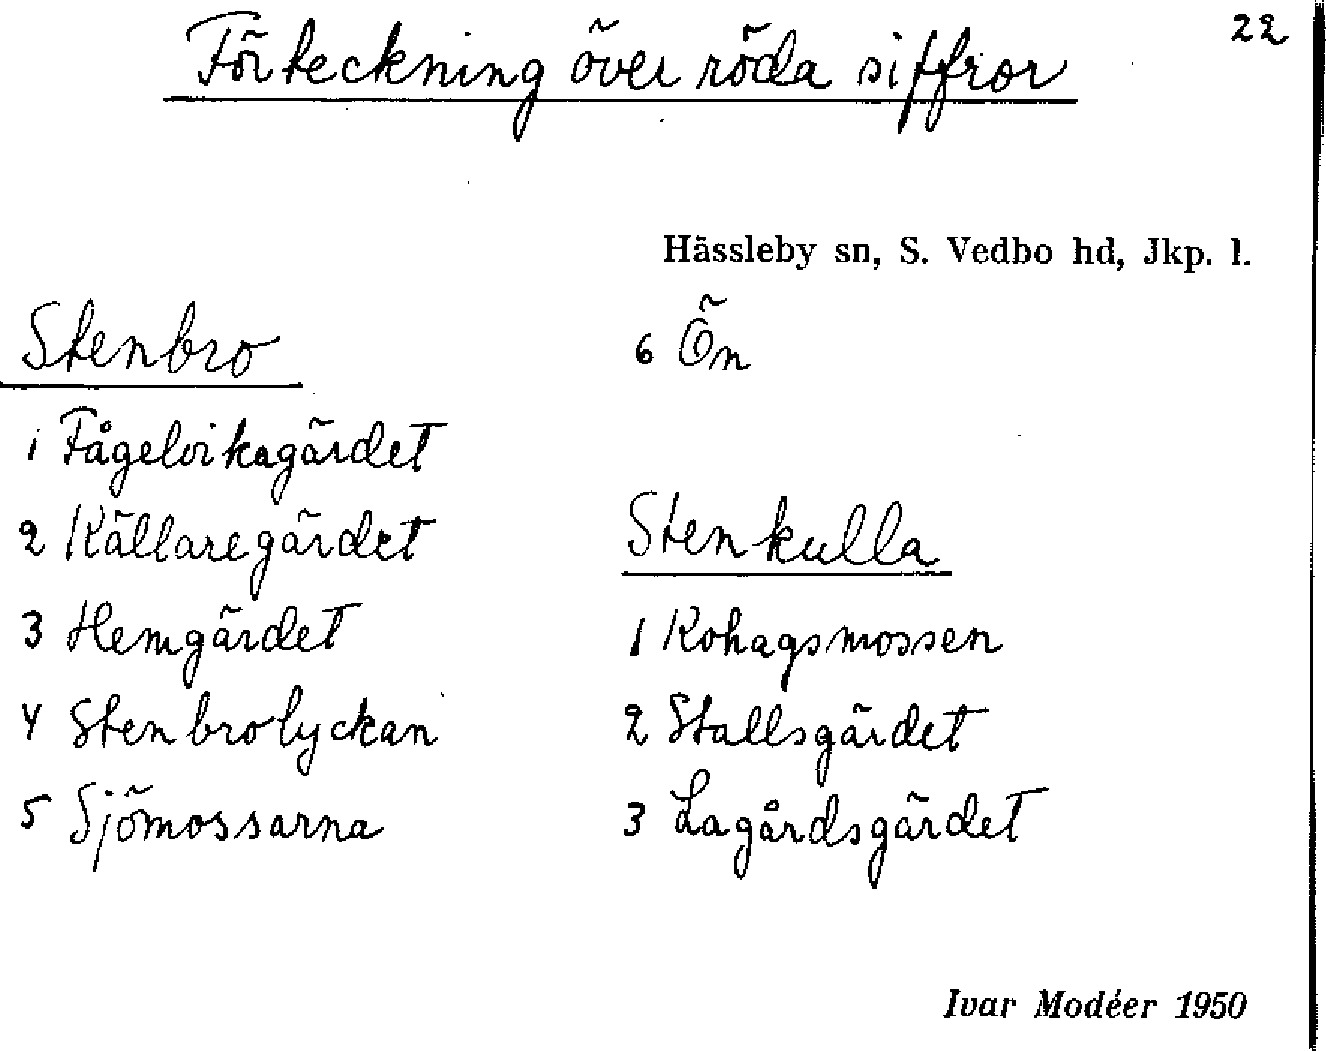 22
Förteckning över röda siffror
Hässleby sn, S. Vedbo hd, Jkp. l.
Stenbro
1 Fågelvikagärdet
2 Källaregärdet
3 Hemgärdet
4 Stenbrolyckan
5 Sjömossarna
6 Ön
Stenkulla
1 Kohagsmossen
2 Stallsgärdet
3 Lagårdsgärdet
Ivar Modéer 1950